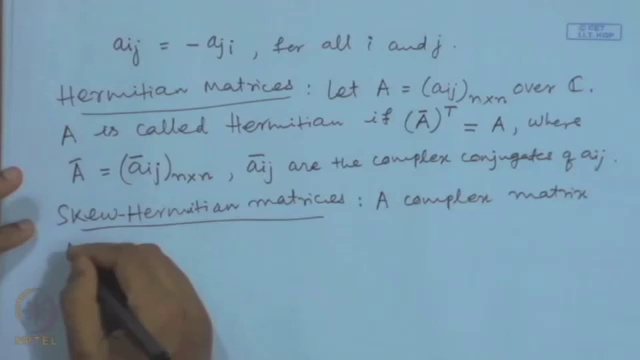 aij = - aji, for all i and j.
Hermitian Matrices : Let A = (aij)n×n over ℂ.
A is called Hermitian if (Ā)ᵀ = A, where
Ā = (āij)n×n, āij are the complex conjugates of aij.
Skew-Hermitian matrices : A complex matrix
© CET
I.I.T. KGP
NPTEL